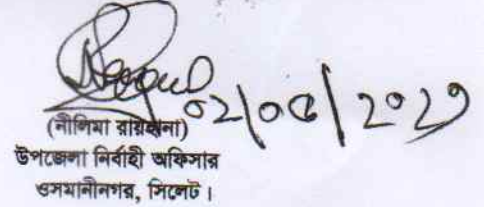 ০২/০৫/২০২৩
(নীলিমা রায়হানা)
উপজেলা নির্বাহী অফিসার
ওসমানীনগর, সিলেট।